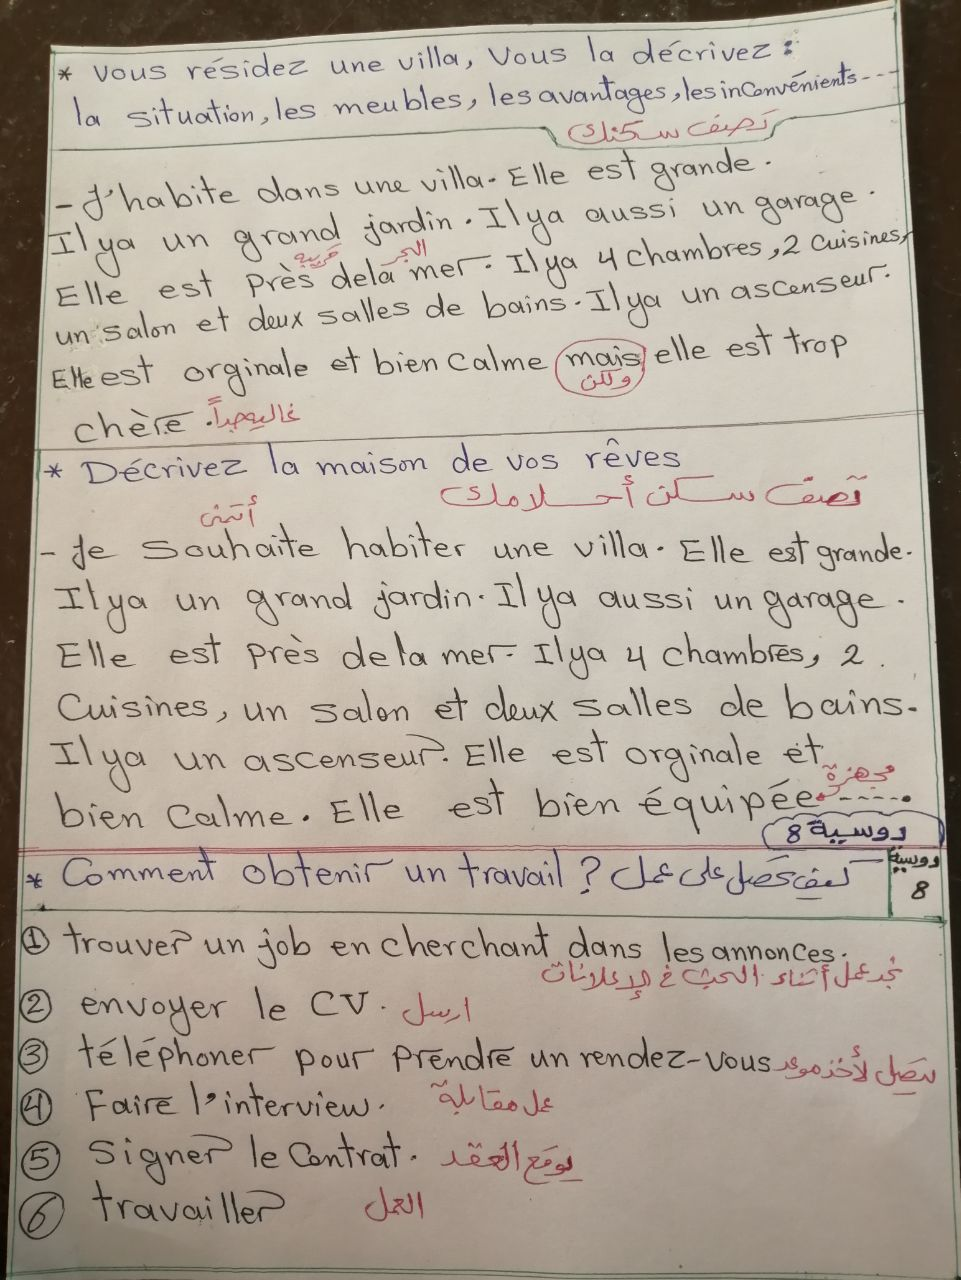 * Vous résidez une villa, Vous la décrivez :
la situation, les meubles, les avantages, les inconvénients ---
تصف سكنك
- J'habite dans une villa. Elle est grande.
Il ya un grand jardin. Il ya aussi un garage.
قريبة البحر
Elle est Près de la mer. Il ya 4 chambres, 2 cuisines,
un salon et deux salles de bains. Il ya un ascenseur.
Elle est orginale et bien calme mais elle est trop
ولكن
chère. غاليه جداً
* Décrivez la maison de vos rêves
تصف سكن أحلامك
أتمنى
- Je souhaite habiter une villa. Elle est grande.
Il ya un grand jardin. Il ya aussi un garage.
Elle est Près de la mer. Il ya 4 chambres, 2
Cuisines, un salon et deux salles de bains.
Il ya un ascenseur. Elle est orginale et
مجهزة
bien calme. Elle est bien équipée.....
دوسية 8
* Comment obtenir un travail ? كيف تحصل على عمل
دوسية 8
① trouver un job en cherchant dans les annonces.
تجد عمل أثناء البحث في الإعلانات
② envoyer le CV. ارسل
③ téléphoner pour prendre un rendez-vous تتصل لأخذ موعد
④ Faire l'interview. عمل مقابلة
⑤ Signer le Contrat. يوقع العقد
⑥ travailler العمل